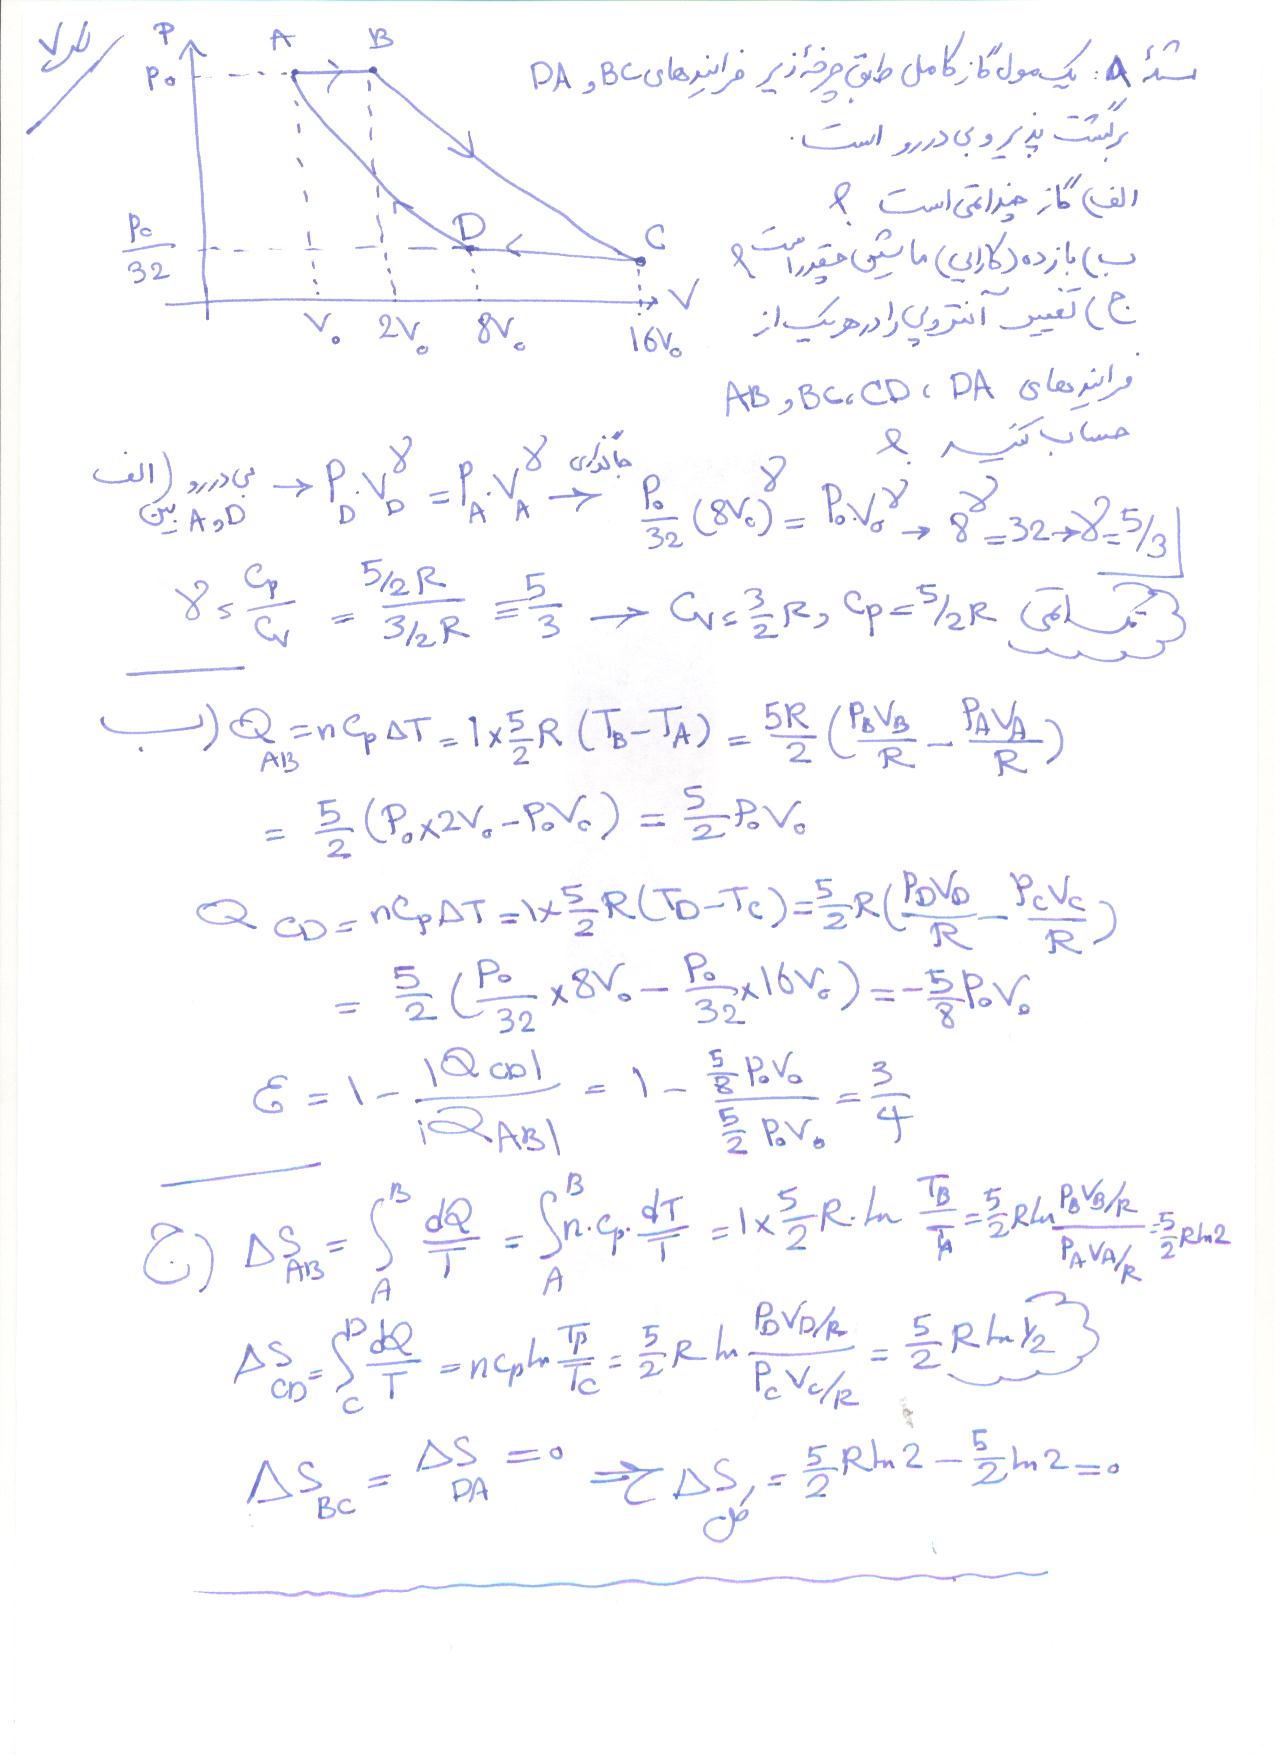 مسئلهٔ ۸: یک مول گاز کامل طبق چرخهٔ زیر فرایندهای BC و DA
برگشت پذیر و بی دررو است.
الف) گاز چند اتمی است ؟
ب) بازده (کارایی) ماشین چقدر است ؟
ج) تغییر آنتروپی را در هر یک از
فرایندهای AB و BC، CD، DA
حساب کنید ؟
P A B
P₀
P₀/32 D C
V₀ 2V₀ 8V₀ 16V₀ V
الف) بی دررو بین A و D → P_D.V_D^γ = P_A.V_A^γ → جاگذاری P₀/32 (8V₀)^γ = P₀.V₀^γ → 8^γ = 32 → γ = 5/3
γ = Cp/Cv = (5/2 R)/(3/2 R) = 5/3 → Cv = 3/2 R, Cp = 5/2 R تک اتمی
ب) Q_AB = nCpΔT = 1×5/2 R (T_B - T_A) = 5R/2 (P_BV_B/R - P_AV_A/R)
= 5/2 (P₀×2V₀ - P₀V₀) = 5/2 P₀V₀
Q_CD = nCpΔT = 1×5/2 R (T_D - T_C) = 5/2 R (P_DV_D/R - P_CV_C/R)
= 5/2 (P₀/32 × 8V₀ - P₀/32 × 16V₀) = -5/8 P₀V₀
ε = 1 - |Q_CD|/|Q_AB| = 1 - (5/8 P₀V₀)/(5/2 P₀V₀) = 3/4
ج) ΔS_AB = ∫_A^B dQ/T = ∫_A^B n.Cp.dT/T = 1×5/2 R.ln T_B/T_A = 5/2 R ln (P_BV_B/R)/(P_AV_A/R) = 5/2 R ln2
ΔS_CD = ∫_C^D dQ/T = nCp ln T_D/T_C = 5/2 R ln (P_DV_D/R)/(P_CV_C/R) = 5/2 R ln 1/2
ΔS_BC = ΔS_DA = 0 ⇒ ΔS کل = 5/2 R ln 2 - 5/2 ln 2 = 0